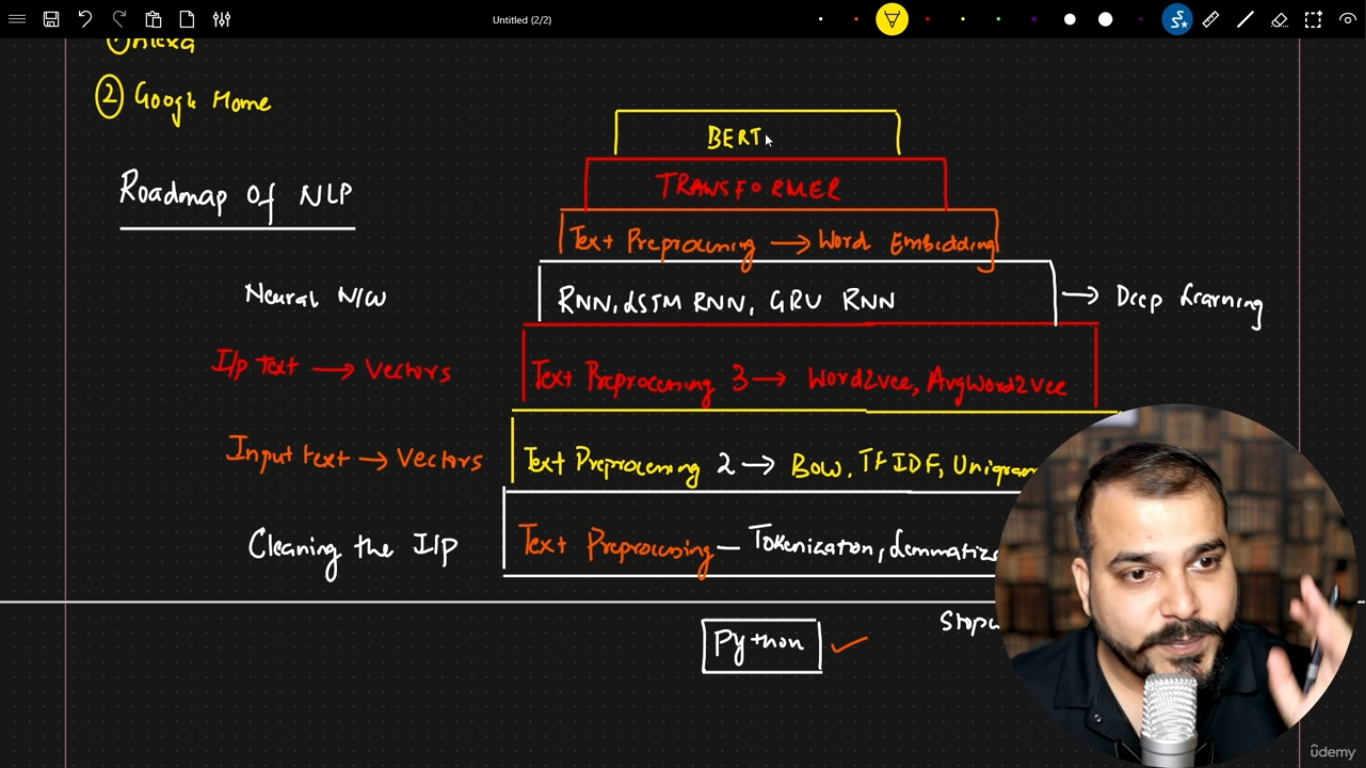 Untitled (2/2)
① Alexa
② Google Home
BERT
Roadmap Of NLP
TRANSFORMER
Text Preprocessing → Word Embedding
Neural N/W
RNN, LSTM RNN, GRU RNN → Deep Learning
I/p text → Vectors
Text Preprocessing 3 → Word2vec, AvgWord2vec
Input text → Vectors
Text Preprocessing 2 → BOW, TFIDF, Unigram
Cleaning the I/p
Text Preprocessing – Tokenization, Lemmatiz
Stopw
Python
ûdemy